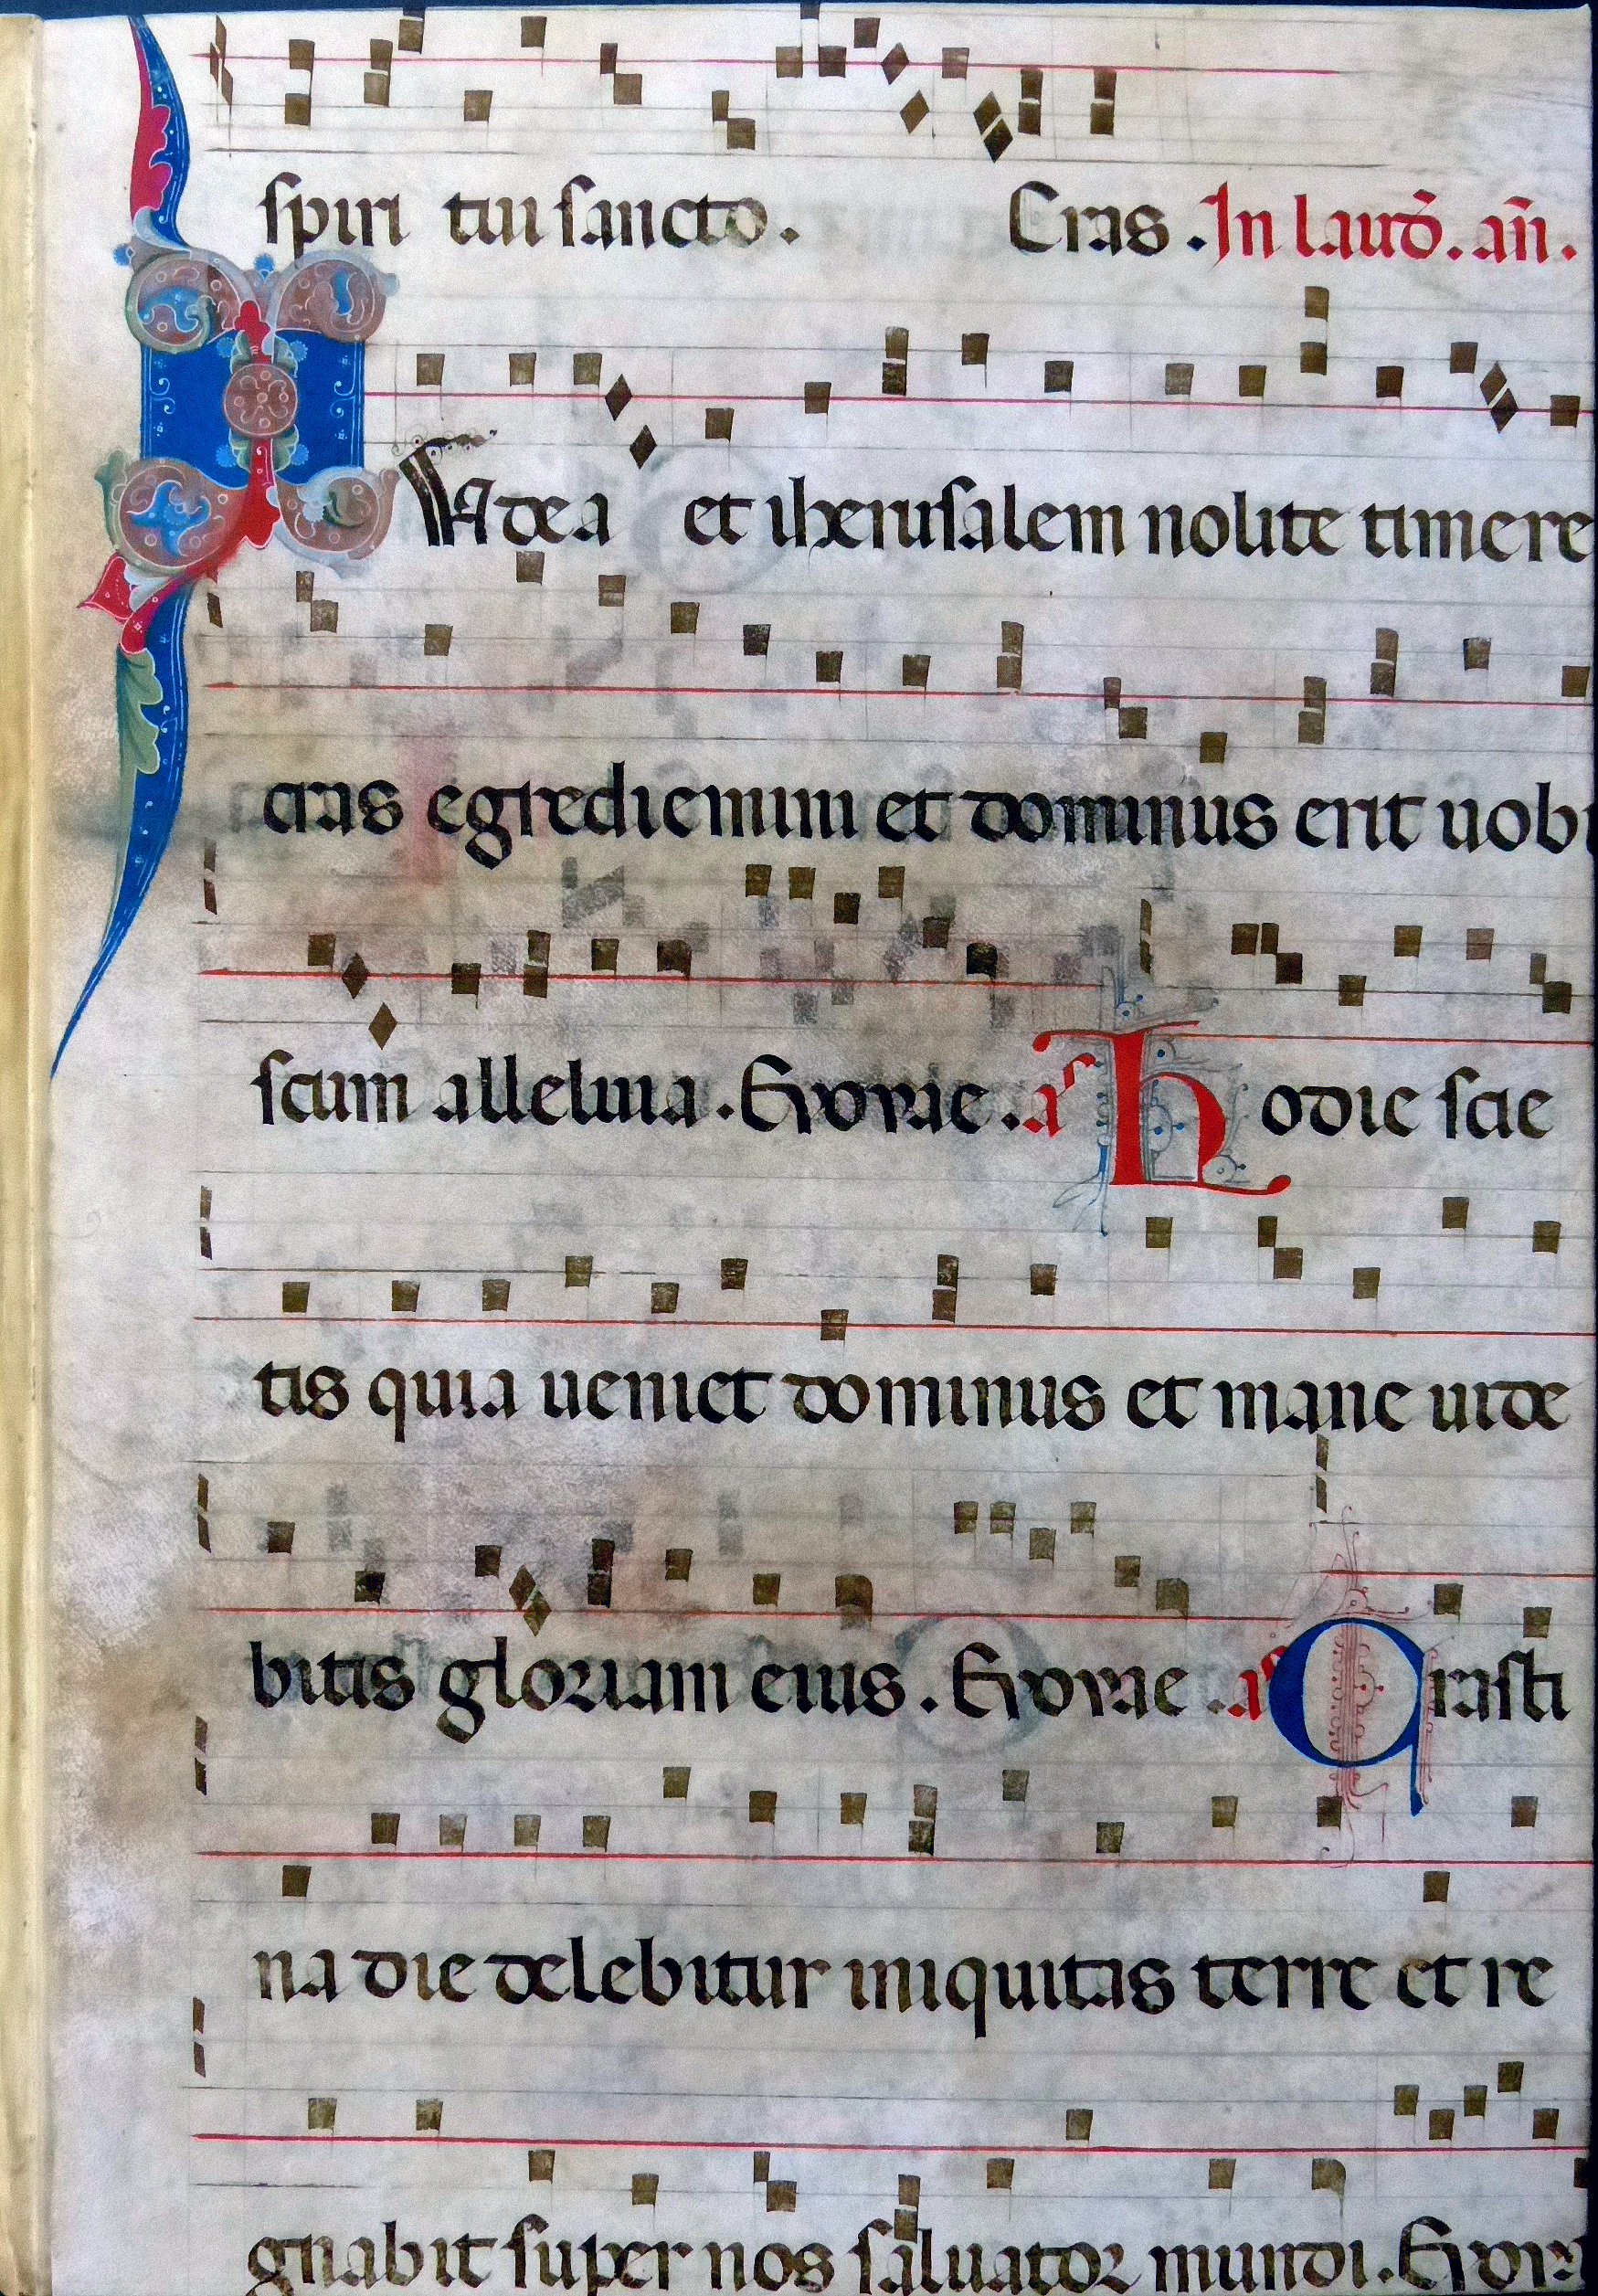 spiri tui sancto. Cras. In laud̄. an̄.
IUdea et iherusalem nolite timere
cras egrediemini et dominus erit uobi
scum alleluia. Evovae. an̄ Hodie scie
tis quia ueniet dominus et mane uide
bitis gloriam eius. Evovae. an̄ Crasti
na die delebitur iniquitas terre et re
gnabit super nos saluator mundi. Evova